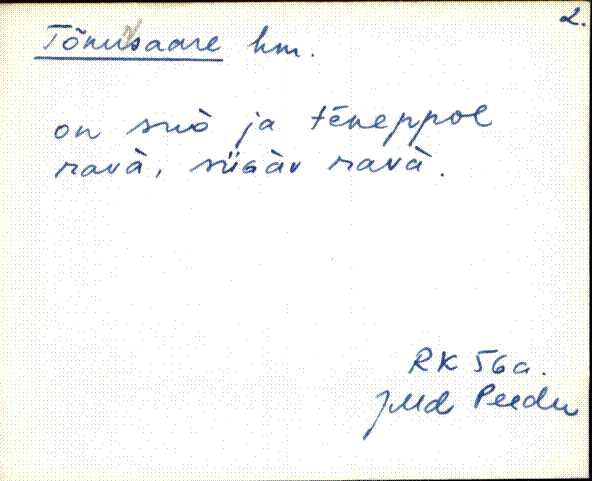 2.
Tõnusaare hm.
on suò ja tēneppol
ravà, siigàv ravà.
RK 56a.
Peedu